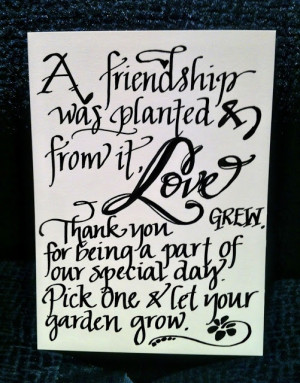 A friendship
was planted &
from it,
Love
GREW.
Thank you
for being a part of
our special day.
Pick one & let your
garden grow.